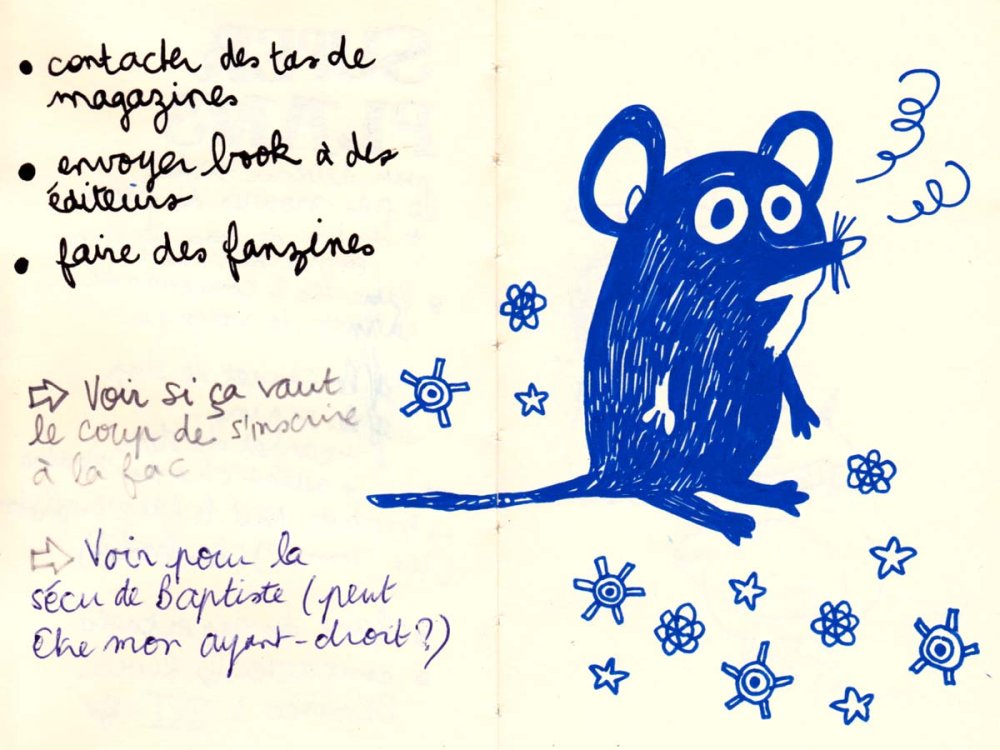 • contacter des tas de
magazines
• envoyer book à des
éditeurs
• faire des fanzines
⇨ Voir si ça vaut
le coup de s'inscrire
à la fac
⇨ Voir pour la
sécu de Baptiste (peut
être mon ayant-droit?)